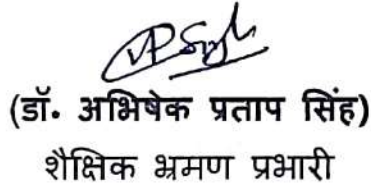 (डॉ. अभिषेक प्रताप सिंह)
शैक्षिक भ्रमण प्रभारी